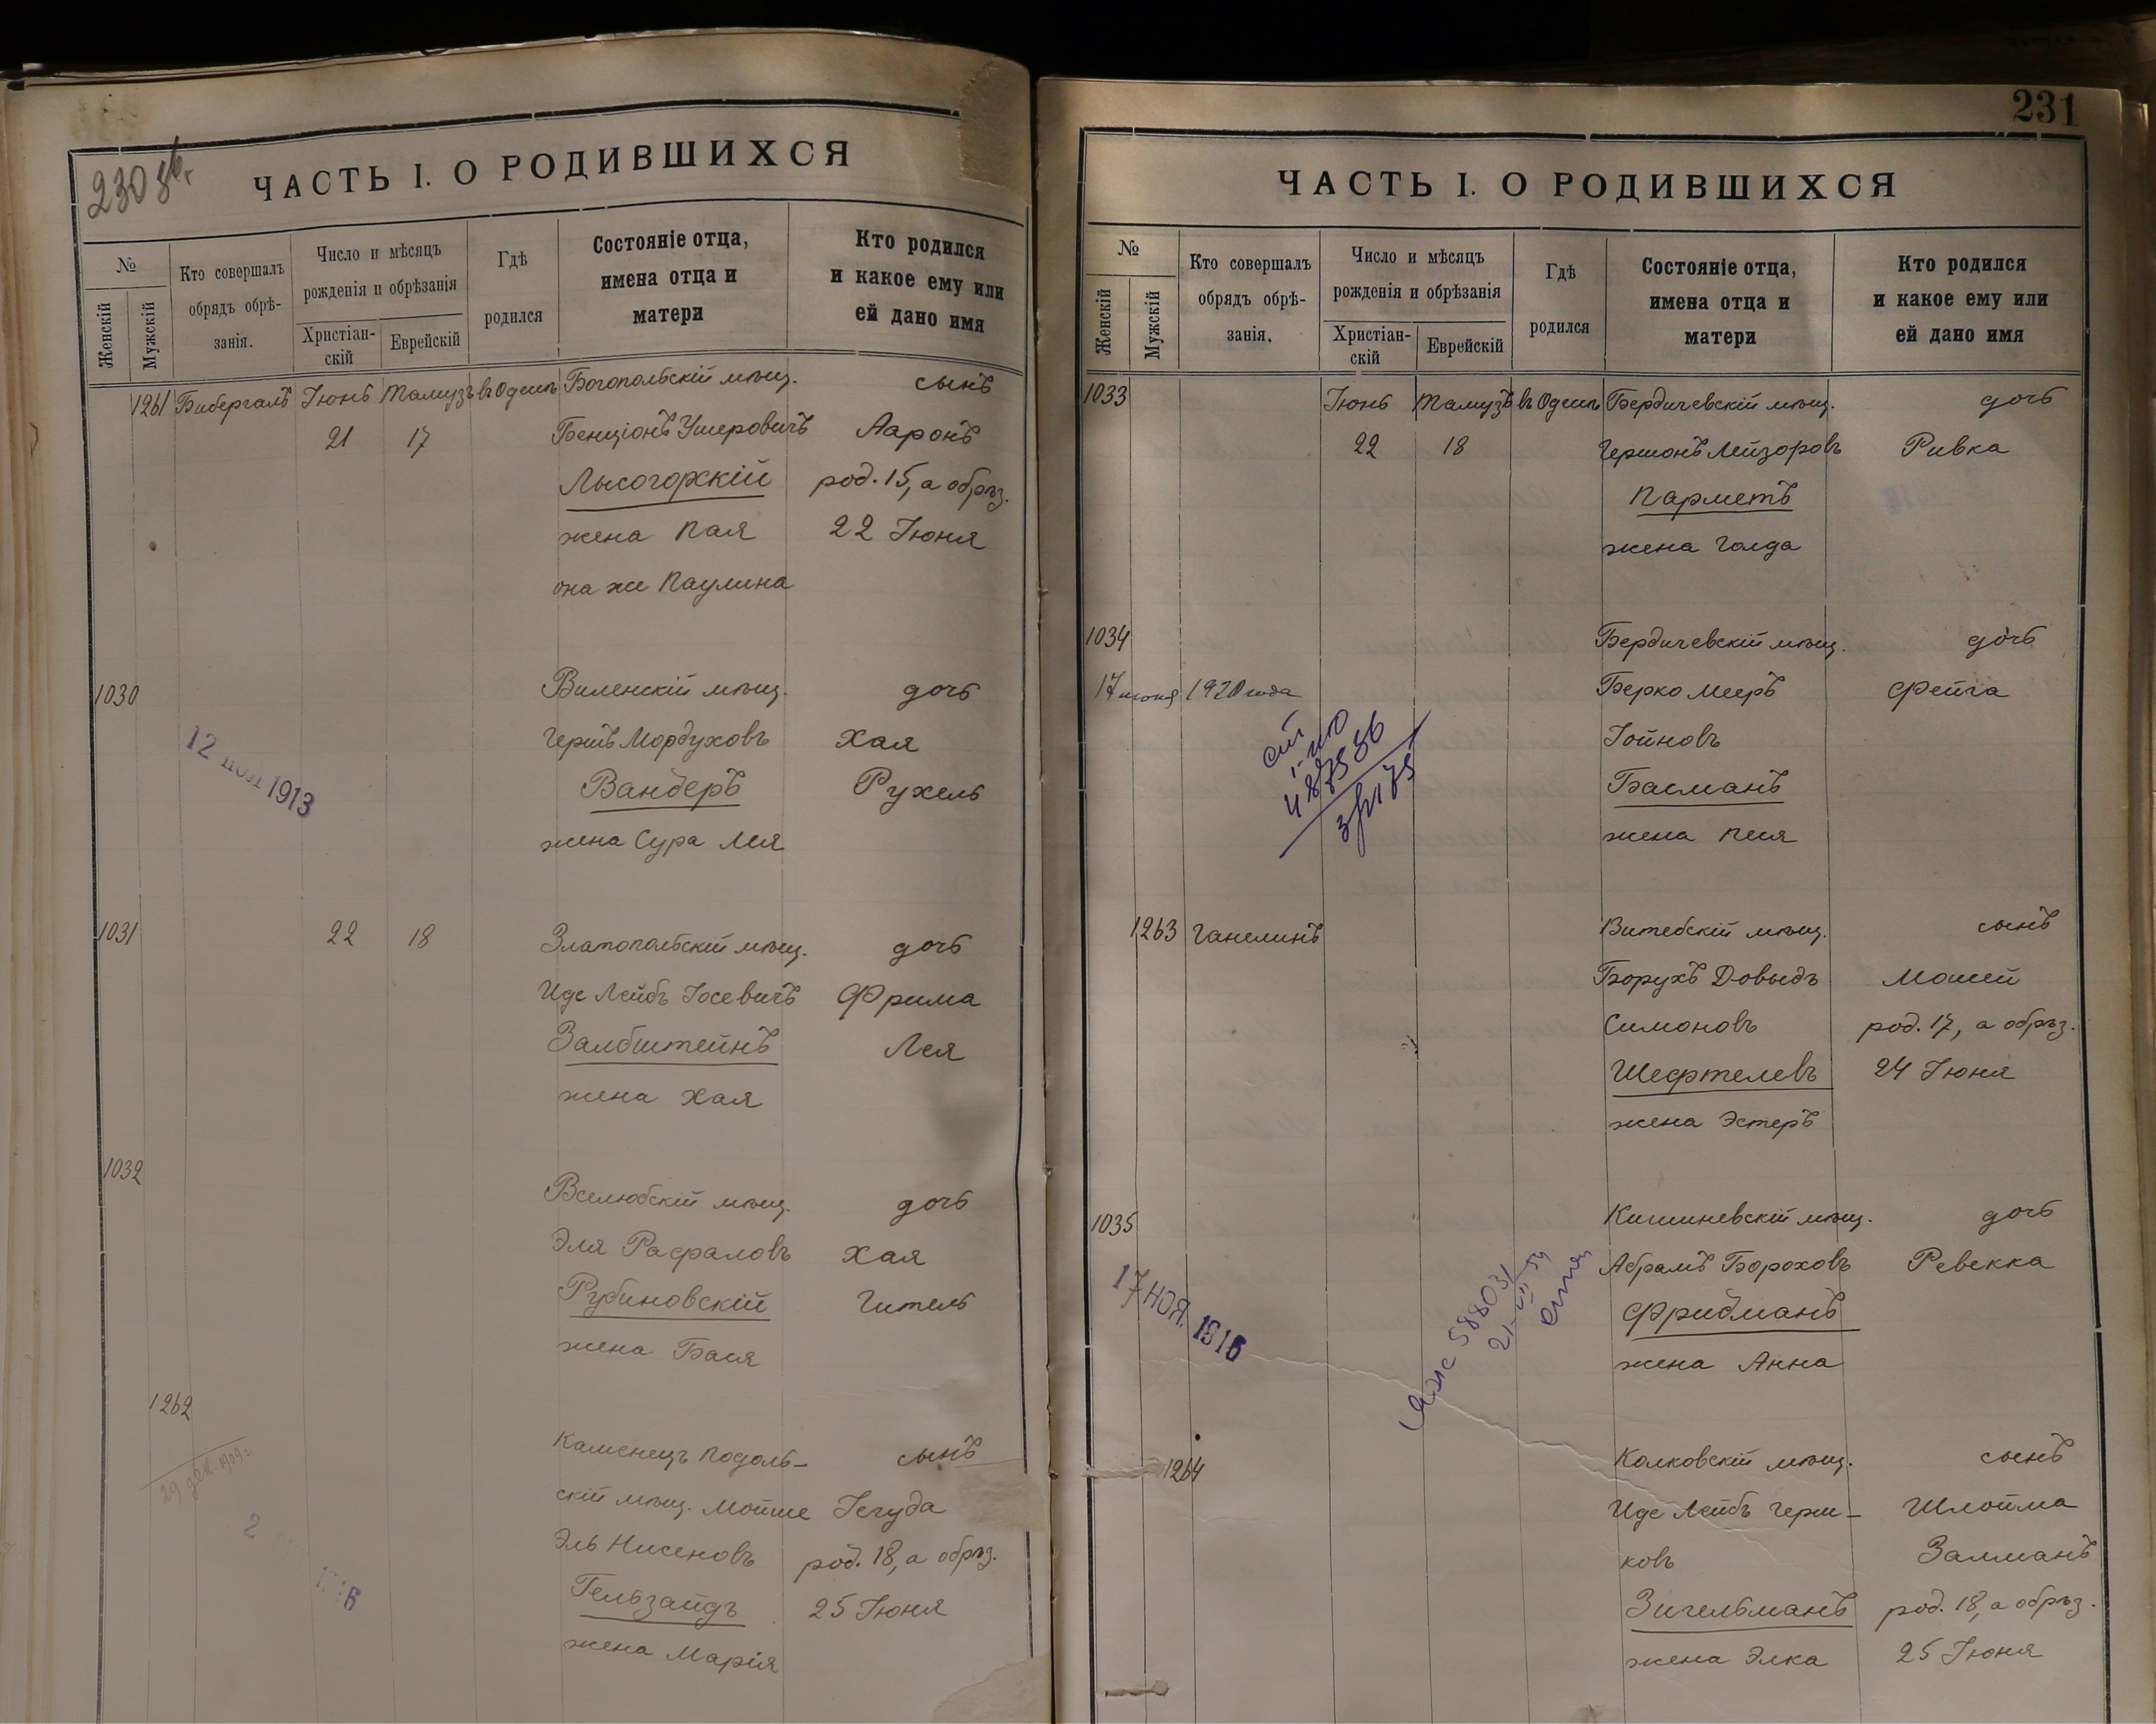 230 об.
ЧАСТЬ I. О РОДИВШИХСЯ
№
Женскій
Мужскій
Кто совершалъ обрядъ обрѣ-
занія.
Число и мѣсяцъ
рожденія и обрѣзанія
Христіан-
скій
Еврейскій
Гдѣ
родился
Состояніе отца,
имена отца и
матери
Кто родился
и какое ему или
ей дано имя
1261 Бибергалъ Іюнь Тамузъ въ Одессѣ Богопольскій мѣщ. сынъ
21 17 Бенціонъ Ушеровичъ Ааронъ
Лысогорскій род. 15, а обрѣз.
жена Пая 22 Іюня
она же Паулина
1030 Виленскій мѣщ. дочь
Гершъ Мордуховъ Хая
12 1913
Вандеръ Рухель
жена Сура Лея
1031 22 18 Златопольскій мѣщ. дочь
Иде Лейбъ Іосевичъ Фрима
Залбштейнъ Лея
жена Хая
1032
Вселюбскій мѣщ. дочь
Эля Рафаловъ Хая
Рубиновскій Гитель
жена Бася
1262
Каменецъ Подоль- сынъ
скій мѣщ. Мойше Іегуда
29 дек. 1909 г.
Эль Нисеновъ род. 18, а обрѣз.
2
Гельзайдъ 25 Іюня
жена Марія
231
ЧАСТЬ I. О РОДИВШИХСЯ
№
Женскій
Мужскій
Кто совершалъ
обрядъ обрѣ-
занія.
Число и мѣсяцъ
рожденія и обрѣзанія
Христіан-
скій
Еврейскій
Гдѣ
родился
Состояніе отца,
имена отца и
матери
Кто родился
и какое ему или
ей дано имя
1033 Іюнь Тамузъ въ Одессѣ Бердичевскій мѣщ. дочь
22 18 Гершонъ Лейзоровъ Ривка
Парметъ
жена Голда
1034 Бердичевскій мѣщ. дочь
17 июня 1920 года Берко Мееръ Фейга
Іойновъ
Басманъ
жена Песя
1263 Ганелинъ Витебскій мѣщ. сынъ
Борухъ Довыдъ Мошей
Симоновъ род. 17, а обрѣз.
Шефтелевъ 24 Іюня
жена Эстеръ
1035 Кишиневскій мѣщ. дочь
Абрамъ Бороховъ Ревекка
17 НОЯ. 1916
588031
Фридманъ
жена Анна
1264 Колковскій мѣщ. сынъ
Иде Лейбъ Герш- Шлойма
ковъ Залманъ
Зигельманъ род. 18, а обрѣз.
жена Элка 25 Іюня